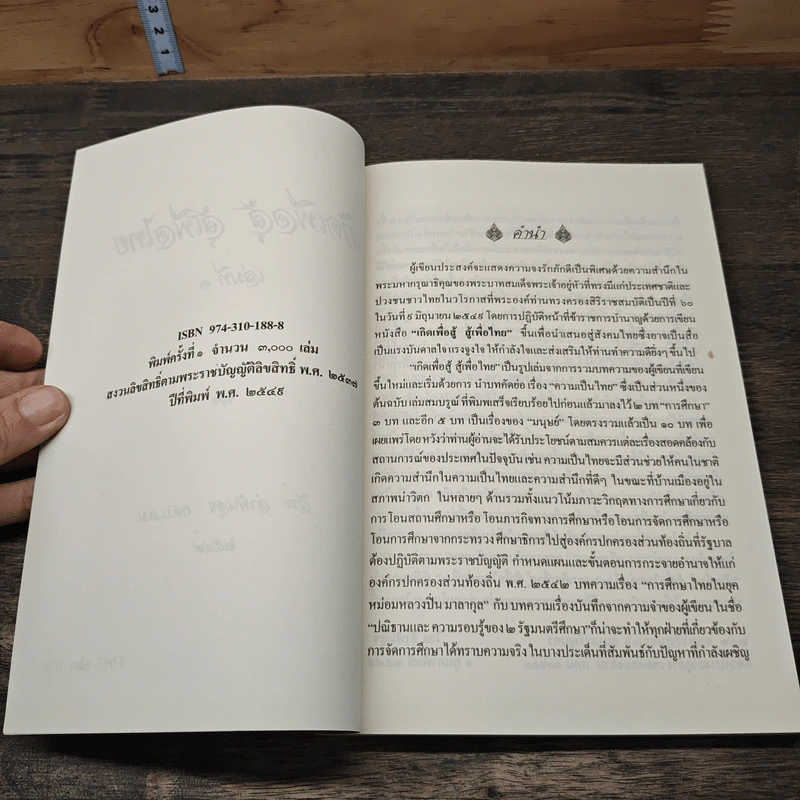 3
2
1
ISBN 974-310-188-8
พิมพ์ครั้งที่ ๑ จำนวน ๓,๐๐๐ เล่ม
สงวนลิขสิทธิ์ตามพระราชบัญญัติลิขสิทธิ์ พ.ศ. ๒๕๓๗
ปีที่พิมพ์ พ.ศ. ๒๕๔๙
คำนำ
ผู้เขียนประสงค์จะแสดงความจงรักภักดีเป็นพิเศษด้วยความสำนึกใน
พระมหากรุณาธิคุณของพระบาทสมเด็จพระเจ้าอยู่หัวที่ทรงมีแก่ประเทศชาติและ
ปวงชนชาวไทยในวโรกาสที่พระองค์ท่านทรงครองสิริราชสมบัติเป็นปีที่ ๖๐
ในวันที่ ๙ มิถุนายน ๒๕๔๙ โดยการปฏิบัติหน้าที่ข้าราชการบำนาญด้วยการเขียน
หนังสือ "เกิดเพื่อสู้ สู้เพื่อไทย" ขึ้นเพื่อนำเสนอสู่สังคมไทยซึ่งอาจเป็นสื่อ
เป็นแรงบันดาลใจ แรงจูงใจ ให้กำลังใจและส่งเสริมให้ท่านทำความดียิ่งๆ ขึ้นไป
"เกิดเพื่อสู้ สู้เพื่อไทย"เป็นรูปเล่มจากการรวมบทความของผู้เขียนที่เขียน
ขึ้นใหม่และเริ่มด้วยการ นำบทคัดย่อ เรื่อง "ความเป็นไทย" ซึ่งเป็นส่วนหนึ่งของ
ต้นฉบับ เล่มสมบรูณ์ ที่พิมพ์เสร็จเรียบร้อยไปก่อนแล้วมาลงไว้ ๒ บท "การศึกษา"
๓ บท และอีก ๕ บท เป็นเรื่องของ "มนุษย์" โดยตรงรวมแล้วเป็น ๑๐ บท เพื่อ
เผยแพร่โดย หวังว่าท่านผู้อ่านจะได้รับประโยชน์ตามสมควรแต่ละเรื่องสอดคล้องกับ
สถานการณ์ของประเทศในปัจจุบัน เช่น ความเป็นไทยจะมีส่วนช่วยให้คนในชาติ
เกิดความสำนึกในความเป็นไทยและความสำนึกที่ดีๆ ในขณะที่บ้านเมืองอยู่ใน
สภาพน่าวิตก ในหลายๆ ด้านรวมทั้งแนวโน้มภาวะวิกฤตทางการศึกษาเกี่ยวกับ
การโอนสถานศึกษาหรือ โอนภารกิจทางการศึกษาหรือโอนการจัดการศึกษาหรือ
โอนการศึกษาจากกระทรวง ศึกษาธิการ ไปสู่องค์กรปกครองส่วนท้องถิ่นที่รัฐบาล
ต้องปฏิบัติตามพระราชบัญญัติ กำหนดแผนและขั้นตอนการกระจายอำนาจให้แก่
องค์กรปกครองส่วนท้องถิ่น พ.ศ. ๒๕๔๒ บทความเรื่อง "การศึกษาไทยในยุค
หม่อมหลวงปิ่น มาลากุล" กับ บทความเรื่องบันทึกจากความจำของผู้เขียน ในชื่อ
"ปณิธานและ ความรอบรู้ของ ๒ รัฐมนตรีศึกษา"ก็น่าจะทำให้ทุกฝ่ายที่เกี่ยวข้องกับ
การจัดการศึกษาได้ทราบความจริง ในบางประเด็นที่สัมพันธ์กับปัญหาที่กำลังเผชิญ